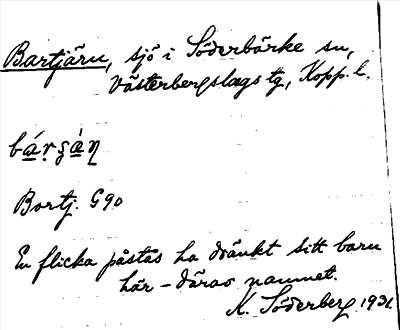 Bartjärn, sjö i Söderbärke sn,
Västerbergslags tg, Kopp. l.
Bortj. G90
En flicka påstås ha dränkt sitt barn
här – därav namnet.
K. Söderberg 1931.